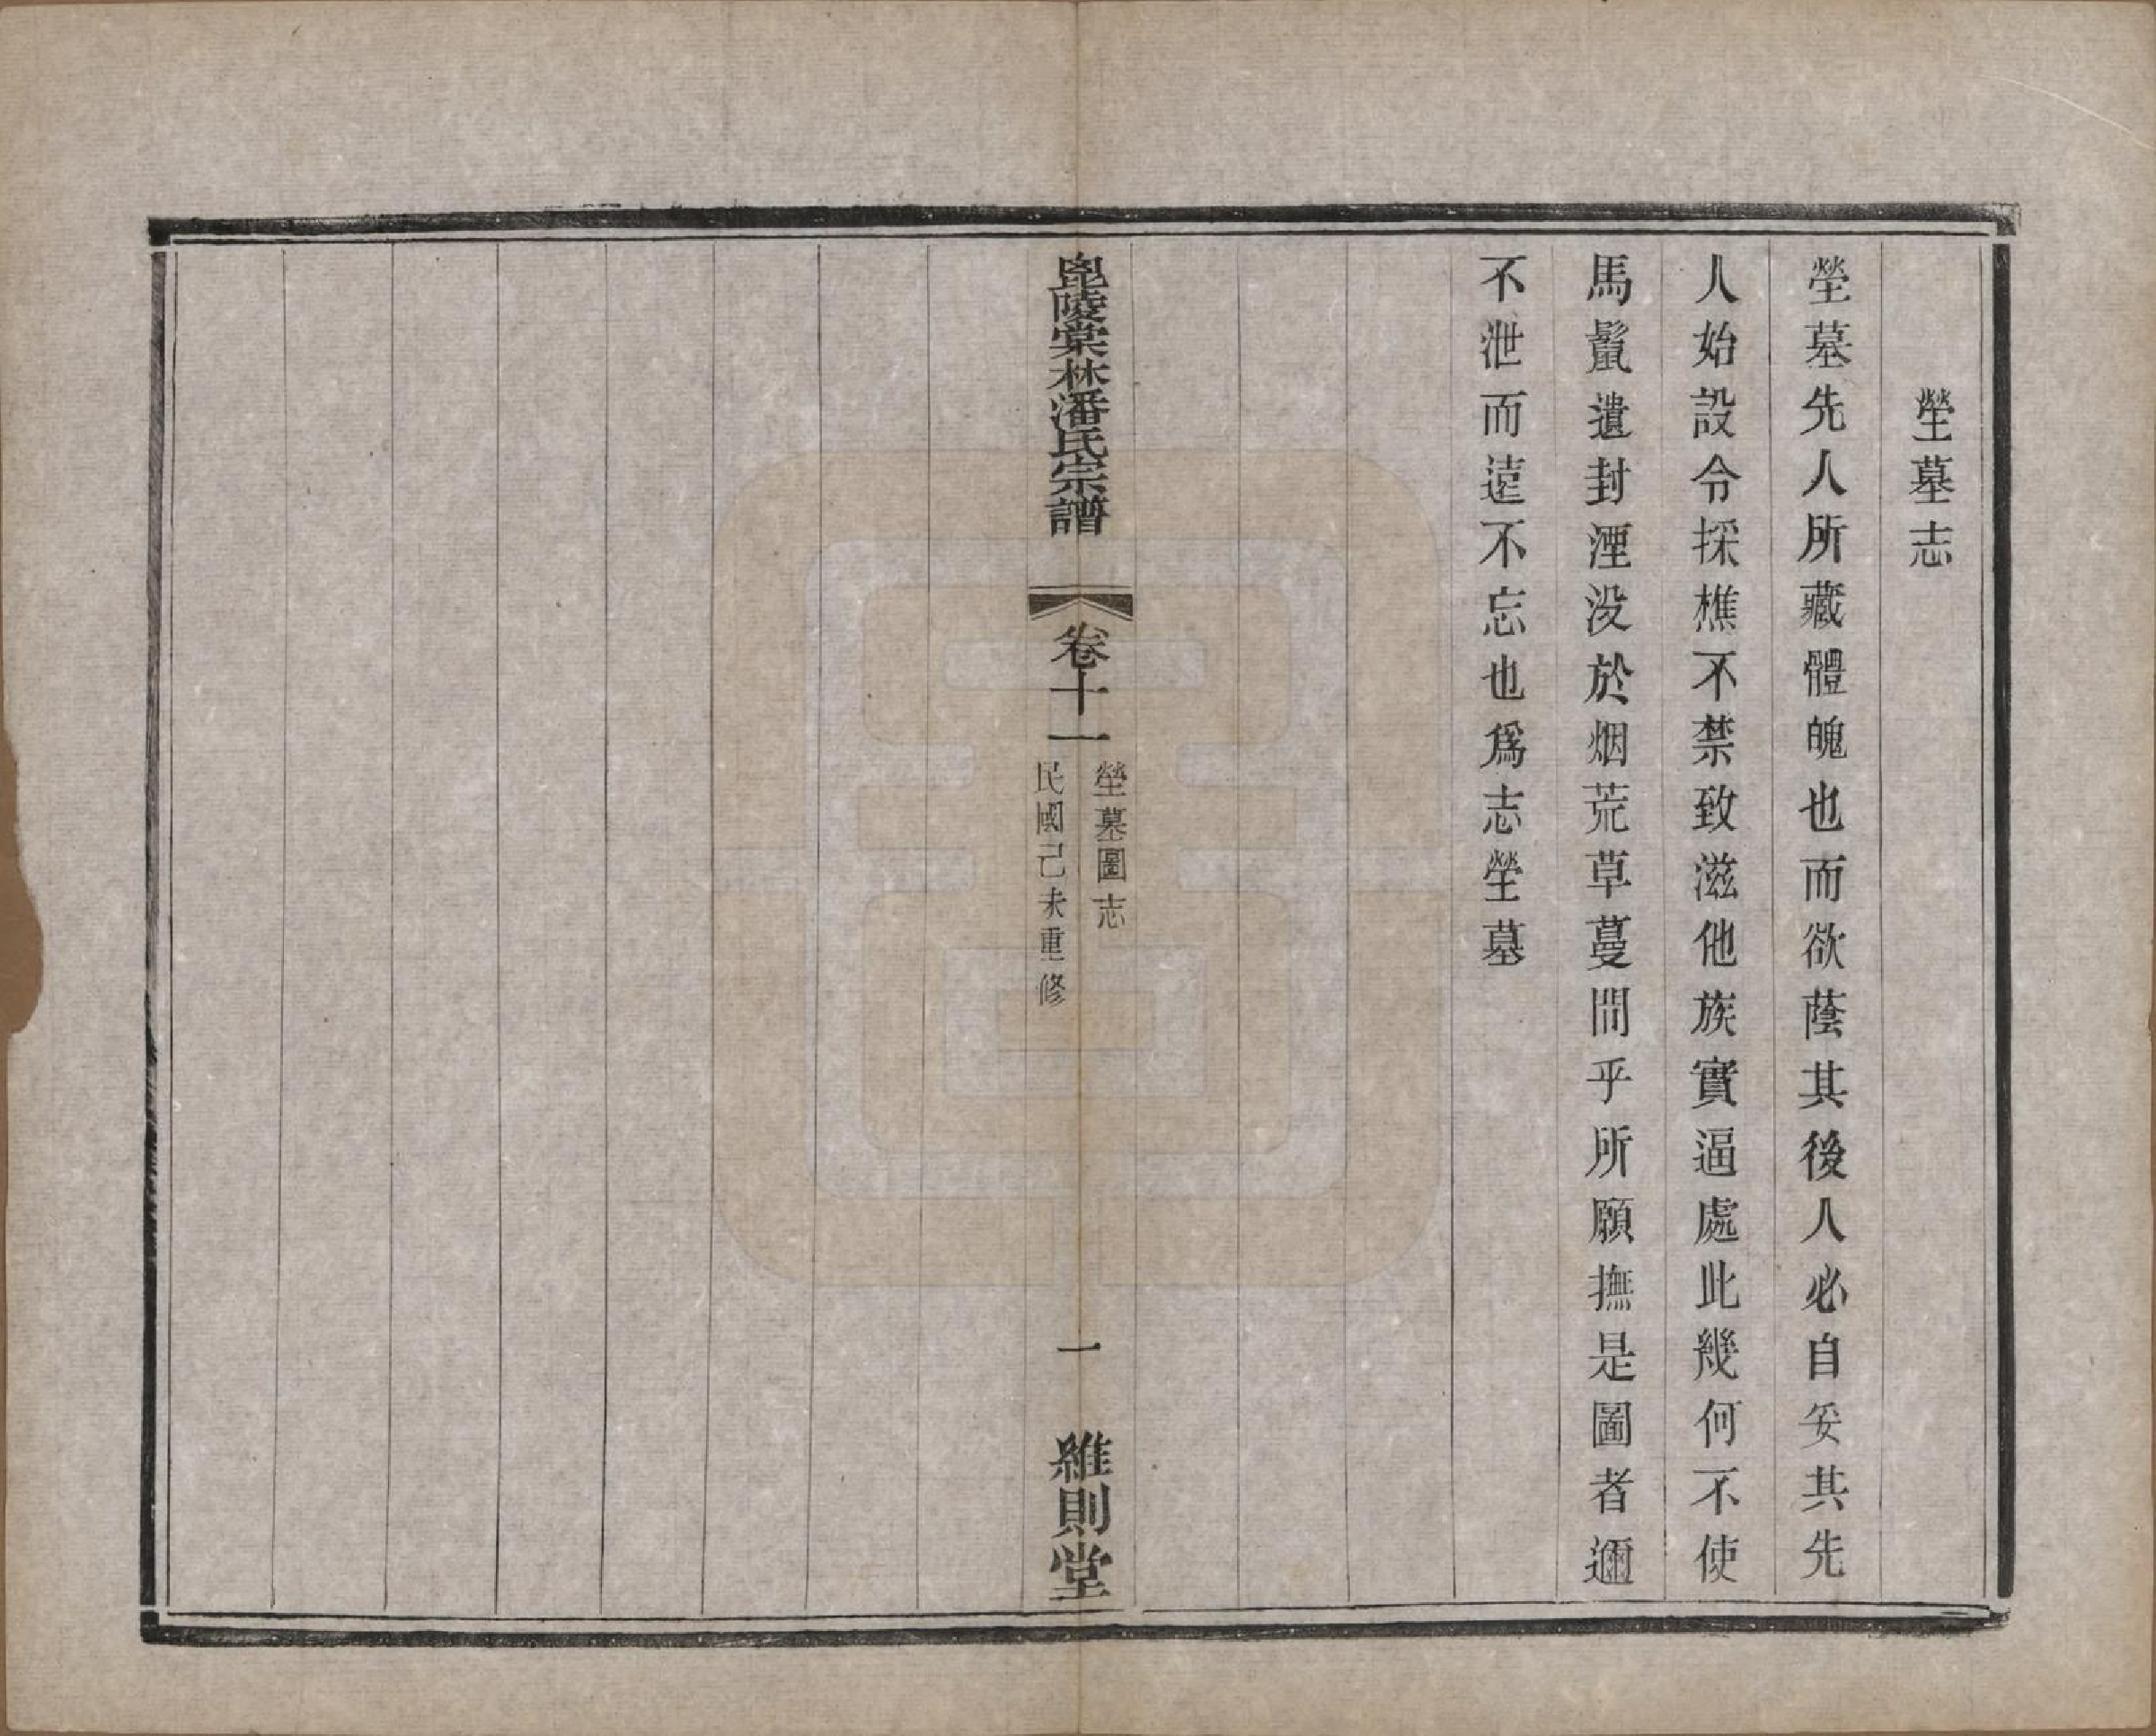 塋墓志
塋墓先人所藏體魄也而欲蔭其後人必自妥其先
人始設令採樵不禁致滋他族實逼處此幾何不使
馬鬛遺封湮没於烟荒草蔓間乎所願撫是圖者邇
不泄而遠不忘也爲志塋墓
毘陵棠林潘氏宗譜
卷十一
塋墓圖志
民國己未重修
一
維則堂